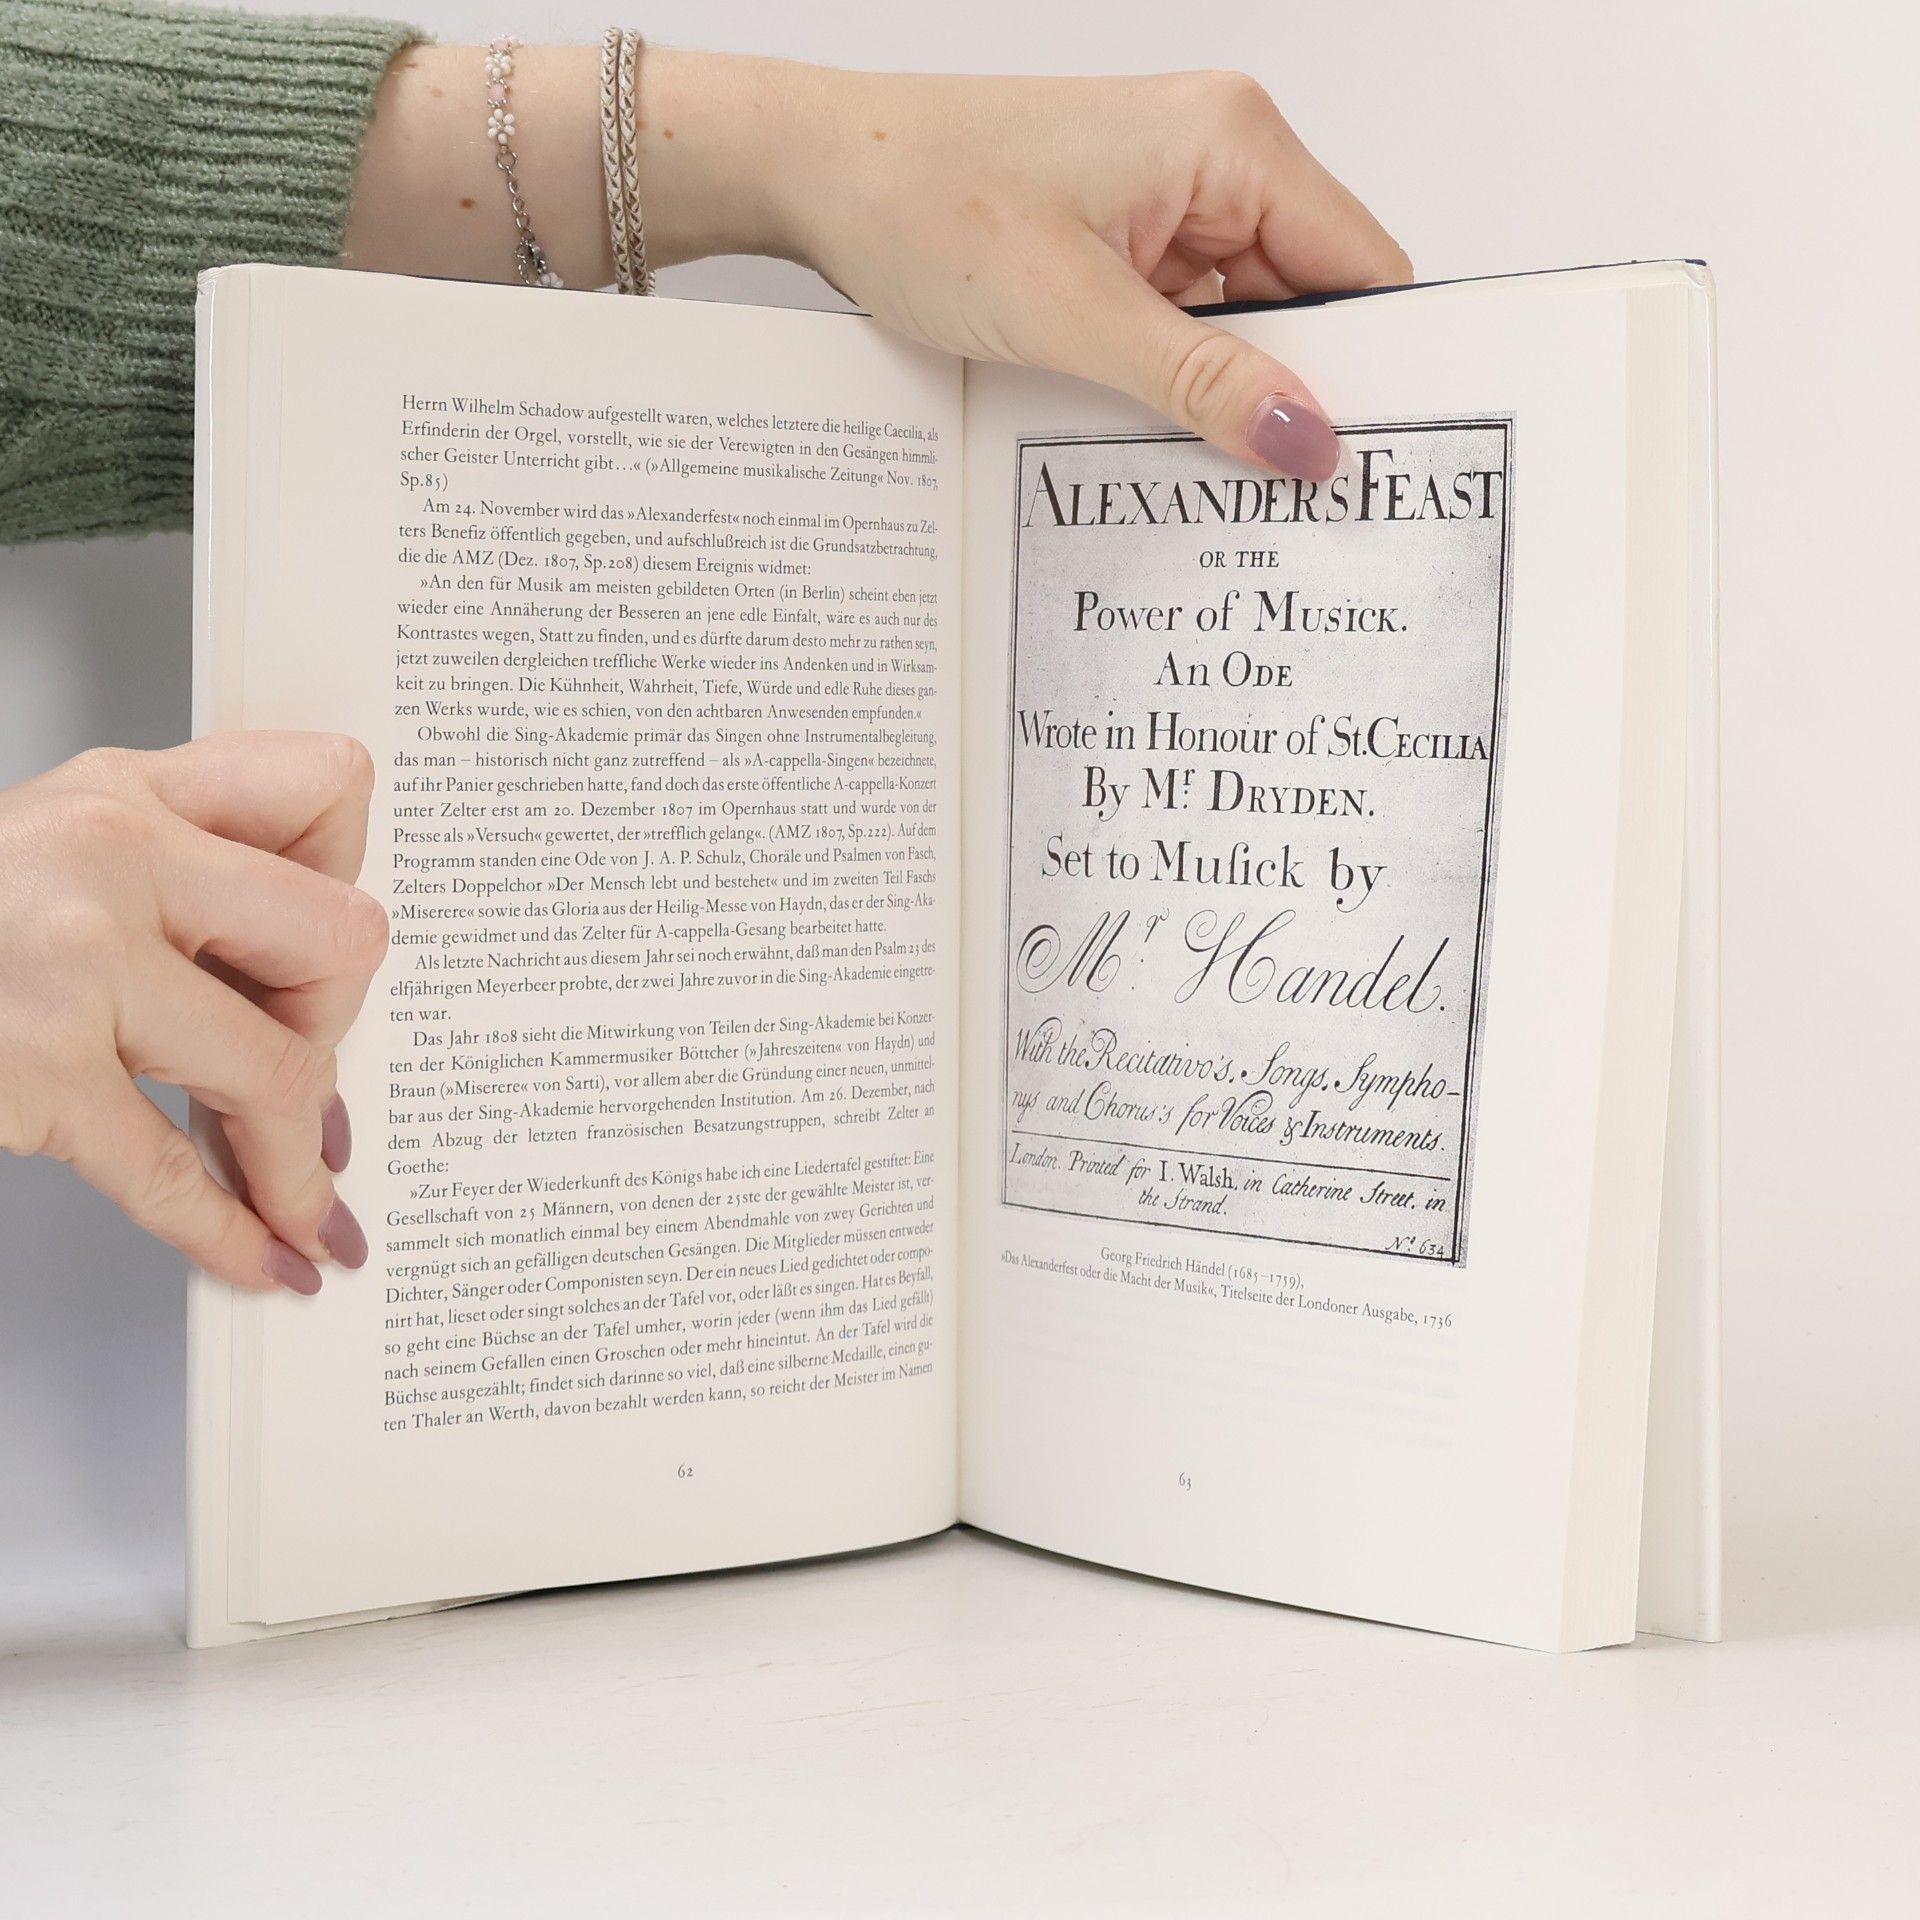 Herrn Wilhelm Schadow aufgestellt waren, welches letztere die heilige Caecilia, als
Erfinderin der Orgel, vorstellt, wie sie der Verewigten in den Gesängen himmli-
scher Geister Unterricht gibt...« (»Allgemeine musikalische Zeitung« Nov. 1807,
Sp.85)
Am 24. November wird das »Alexanderfest« noch einmal im Opernhaus zu Zel-
ters Benefiz öffentlich gegeben, und aufschlußreich ist die Grundsatzbetrachtung,
die die AMZ (Dez. 1807, Sp.208) diesem Ereignis widmet:
»An den für Musik am meisten gebildeten Orten (in Berlin) scheint eben jetzt
wieder eine Annäherung der Besseren an jene edle Einfalt, wäre es auch nur des
Kontrastes wegen, Statt zu finden, und es dürfte darum desto mehr zu rathen seyn,
jetzt zuweilen dergleichen treffliche Werke wieder ins Andenken und in Wirksam-
keit zu bringen. Die Kühnheit, Wahrheit, Tiefe, Würde und edle Ruhe dieses gan-
zen Werks wurde, wie es schien, von den achtbaren Anwesenden empfunden.«
Obwohl die Sing-Akademie primär das Singen ohne Instrumentalbegleitung,
das man – historisch nicht ganz zutreffend – als »A-cappella-Singen« bezeichnete,
auf ihr Panier geschrieben hatte, fand doch das erste öffentliche A-cappella-Konzert
unter Zelter erst am 20. Dezember 1807 im Opernhaus statt und wurde von der
Presse als »Versuch« gewertet, der »trefflich gelang«. (AMZ 1807, Sp.222). Auf dem
Programm standen eine Ode von J. A. P. Schulz, Choräle und Psalmen von Fasch,
Zelters Doppelchor »Der Mensch lebt und bestehet« und im zweiten Teil Faschs
»Miserere« sowie das Gloria aus der Heilig-Messe von Haydn, das er der Sing-Aka-
demie gewidmet und das Zelter für A-cappella-Gesang bearbeitet hatte.
Als letzte Nachricht aus diesem Jahr sei noch erwähnt, daß man den Psalm 23 des
elfjährigen Meyerbeer probte, der zwei Jahre zuvor in die Sing-Akademie eingetre-
ten war.
Das Jahr 1808 sieht die Mitwirkung von Teilen der Sing-Akademie bei Konzer-
ten der Königlichen Kammermusiker Böttcher (»Jahreszeiten« von Haydn) und
Braun (»Miserere« von Sarti), vor allem aber die Gründung einer neuen, unmittel-
bar aus der Sing-Akademie hervorgehenden Institution. Am 26. Dezember, nach
dem Abzug der letzten französischen Besatzungstruppen, schreibt Zelter an
Goethe:
»Zur Feyer der Wiederkunft des Königs habe ich eine Liedertafel gestiftet: Eine
Gesellschaft von 25 Männern, von denen der 25ste der gewählte Meister ist, ver-
sammelt sich monatlich einmal bey einem Abendmahle von zwey Gerichten und
vergnügt sich an gefälligen deutschen Gesängen. Die Mitglieder müssen entweder
Dichter, Sänger oder Componisten seyn. Der ein neues Lied gedichtet oder compo-
nirt hat, lieset oder singt solches an der Tafel vor, oder läßt es singen. Hat es Beyfall,
so geht eine Büchse an der Tafel umher, worin jeder (wenn ihm das Lied gefällt)
nach seinem Gefallen einen Groschen oder mehr hineintut. An der Tafel wird die
Büchse ausgezählt; findet sich darinne so viel, daß eine silberne Medaille, einen gu-
ten Thaler an Werth, davon bezahlt werden kann, so reicht der Meister im Namen
62
ALEXANDER'S FEAST
OR THE
Power of MUSICK.
An ODE
Wrote in Honour of St. CECILIA
By Mr. DRYDEN.
Set to Muſick by
Mr. Handel.
With the Recitativo's, Songs, Sympho-
nys and Chorus's for Voices & Instruments.
London. Printed for I. Walsh, in Catherine Street, in
the Strand.
No. 634
Georg Friedrich Händel (1685–1759),
»Das Alexanderfest oder die Macht der Musik«, Titelseite der Londoner Ausgabe, 1736
63